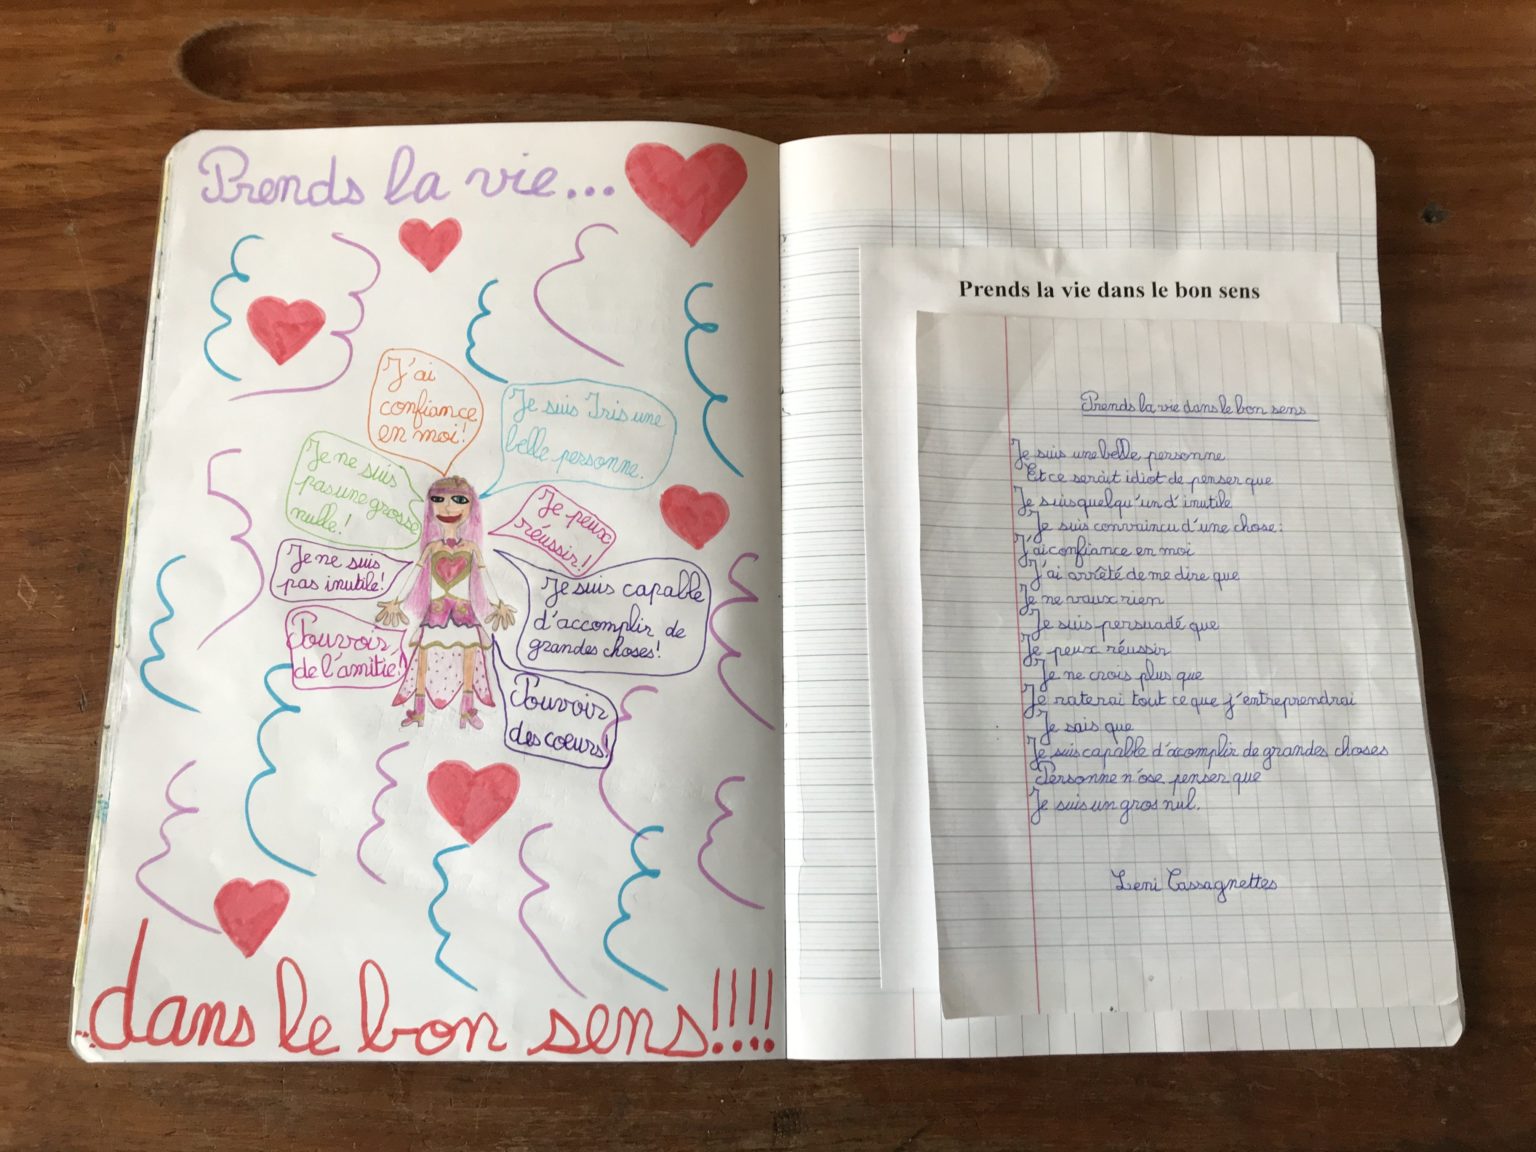 Prends la vie...
J'ai
confiance
en moi!
Je suis Iris une
belle personne.
Je ne suis
pas une grosse
nulle!
Je peux
réussir!
Je ne suis
pas inutile!
Je suis capable
d'accomplir de
grandes choses!
Pouvoir
de l'amitié!
Pouvoir
des cœurs!
...dans le bon sens!!!!
Prends la vie dans le bon sens
Prends la vie dans le bon sens
Je suis une belle personne
Et ce serait idiot de penser que
Je suis quelqu'un d'inutile
Je suis convaincu d'une chose:
J'ai confiance en moi
J'ai arrêté de me dire que
Je ne vaux rien
Je suis persuadé que
Je peux réussir
Je ne crois plus que
Je raterai tout ce que j'entreprendrai
Je sais que
Je suis capable d'acomplir de grandes choses
Personne n'ose penser que
Je suis un gros nul.
Leni Cassagnettes